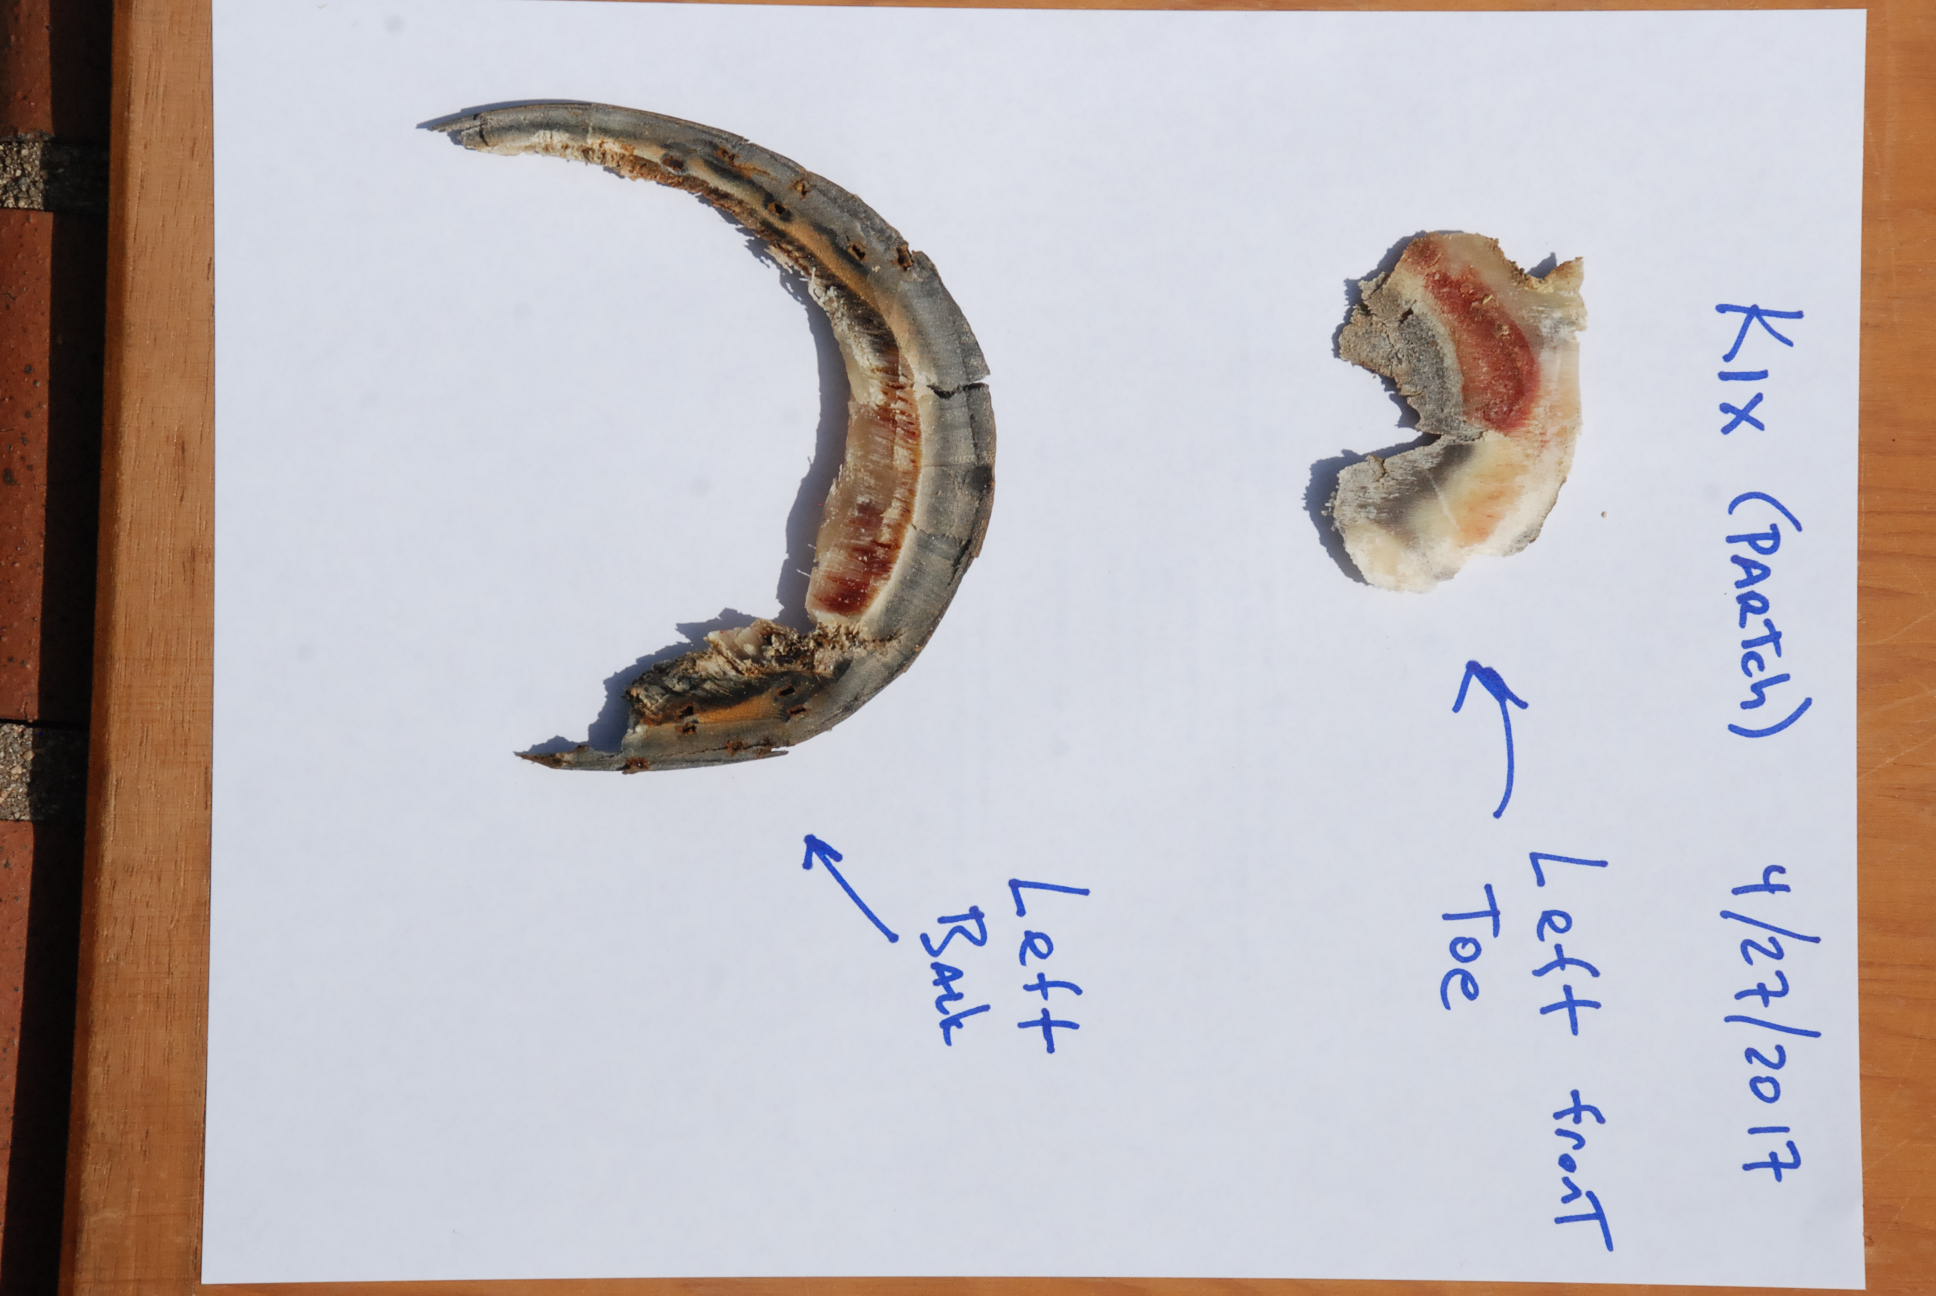 KIX (PARTch) 4/27/2017
Left fronT
Toe
Left
BAck